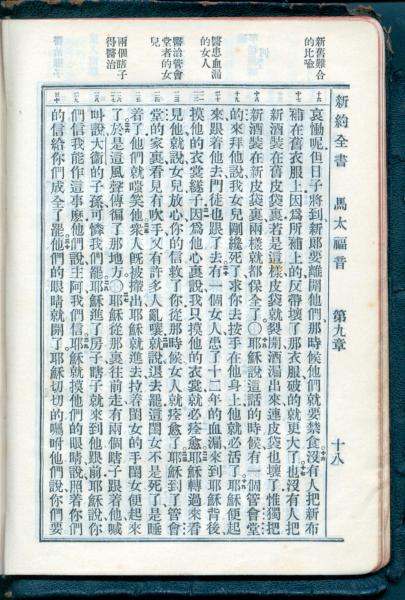 新約全書 馬太福音 第九章 十八
新舊難合
的比喻
醫患血漏
的女人
醫治管會
堂者的女
兒
兩個瞎子
得醫治
哀慟呢但日子將到新郎要離開他們那時候他們就要禁食沒有人把新布
補在舊衣服上因爲所補上的反帶壞了那衣服破的就更大了也沒有人把
新酒裝在舊皮袋裏若是這樣皮袋就裂開酒漏出來連皮袋也壞了惟獨把
新酒裝在新皮袋裏兩樣就都保全了〇耶穌說這話的時候有一個管會堂
的來拜他說我女兒剛纔死了求你去按手在他身上他就必活了耶穌便起
來跟着他去門徒也跟了去有一個女人患了十二年的血漏來到耶穌背後
摸他的衣裳繸子因爲他心裏說我只摸他的衣裳就必痊愈耶穌轉過來看
見他就說女兒放心你的信救了你從那時候女人就痊愈了耶穌到了管會
堂的家裏看見有吹手又有許多人亂嚷就說退去罷這閨女不是死了是睡
着了他們就嗤笑他衆人旣被攆出耶穌就進去拉着閨女的手閨女便起來
了於是這風聲傳徧了那地方〇耶穌從那裏往前走有兩個瞎子跟着他喊
叫說大衛的子孫可憐我們罷耶穌進了房子瞎子就來到他跟前耶穌說你
們信我能作這事麽他們說主阿我們信耶穌就摸他們的眼睛說照着你們
的信給你們成全了罷他們的眼睛就開了耶穌切切的囑咐他們說你們要